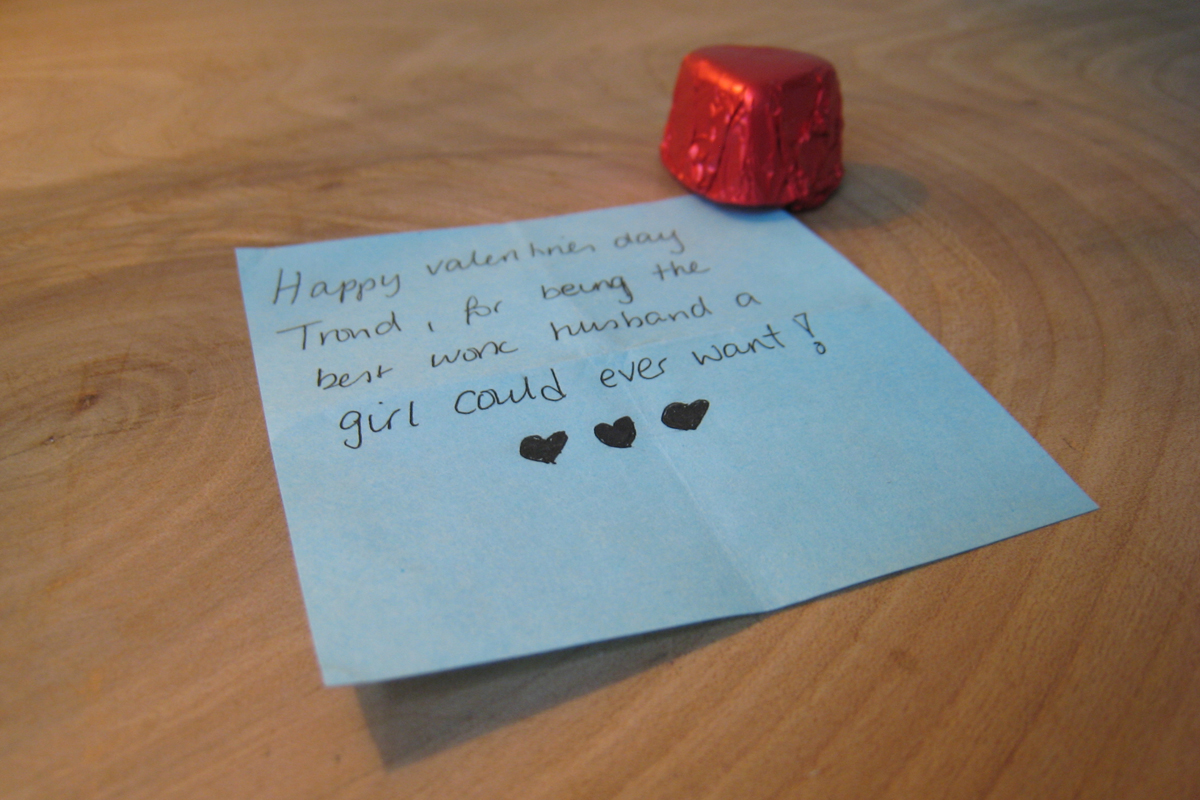 Happy valentines day
Trond, for being the
best work husband a
girl could ever want!